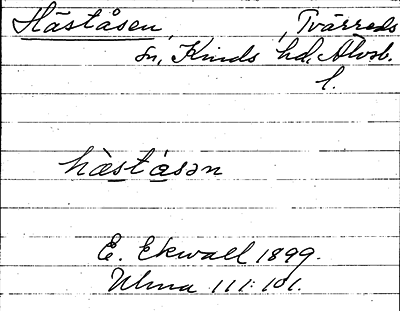 Häståsen, , Tvärreds
sn, Kinds hd, Älvsb.
l.
hàståsən
E. Ekwall 1899.
Ulma 111:101.